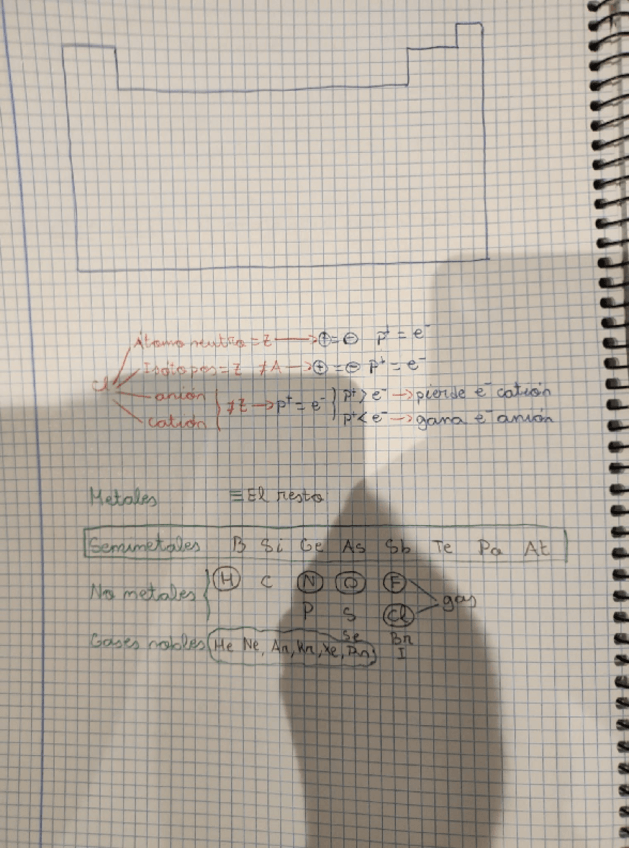 Átomo neutro = Z → ⊕=⊖ p⁺ = e⁻
Isótopos = Z ≠A → ⊕ = ⊖ p⁺ = e⁻
Cl
anión } ≠Z → p⁺ = e⁻ } p⁺> e⁻ → pierde e⁻ catión
catión p⁺< e⁻ → gana e⁻ anión
Metales ≡ El resto
Semimetales B Si Ge As Sb Te Po At
No metales { H C N O F > gas
P S Cl
Se Br
Gases nobles He Ne, Ar, Kr, Xe, Rn I